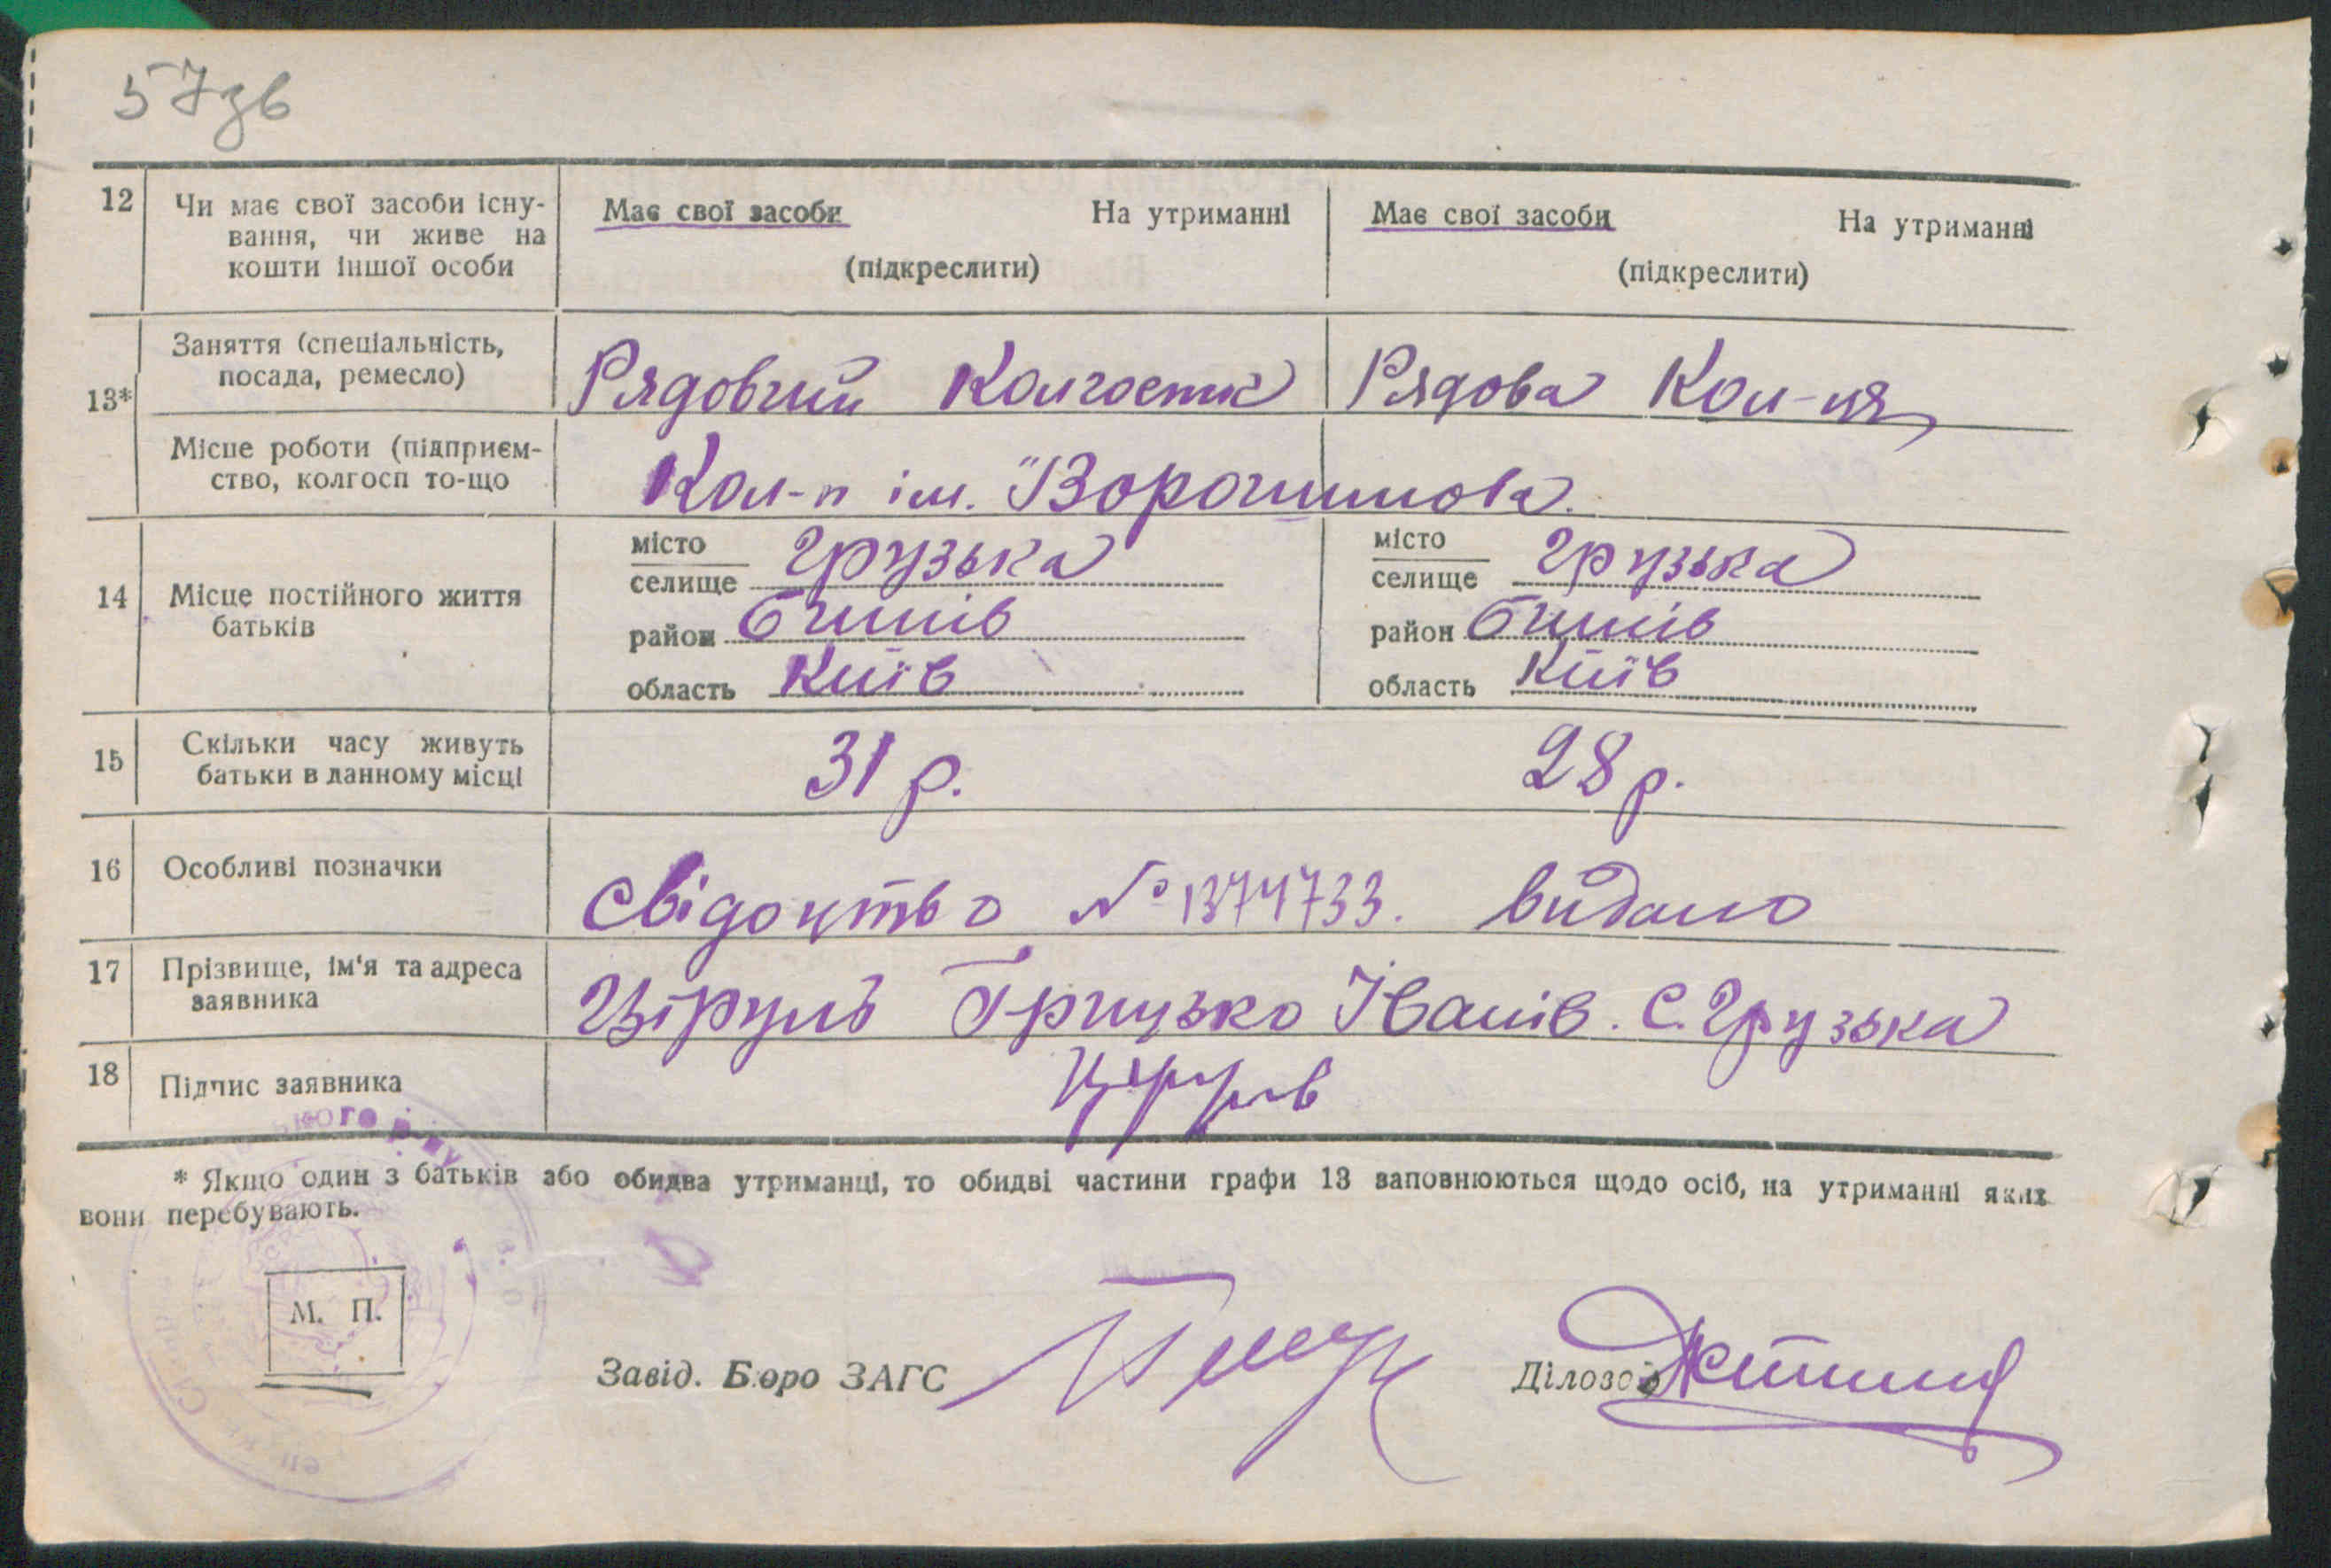 57зв
12 Чи має свої засоби існу- Має свої засоби На утриманні Має свої засоби На утриманні
вання, чи живе на
кошти іншої особи (підкреслити) (підкреслити)
Заняття (спеціальність,
посада, ремесло) Рядовий Колгоспник Рядова Кол-ця
13*
Місце роботи (підприєм-
ство, колгосп то-що Кол-п ім. "Ворошилова.
місто місто
селище Грузька селище Грузька
14 Місце постійного життя
батьків район Бишів район Бишів
область Київ область Київ
15 Скільки часу живуть
батьки в данному місці 31 р. 28 р.
16 Особливі позначки Свідоцтво № 1374733. видано
17 Прізвище, ім'я та адреса
заявника Ціруль Грицько Іванів. С. Грузька
18 Підпис заявника
* Якщо один з батьків або обидва утриманці, то обидві частини графи 13 заповнюються щодо осіб, на утриманні яких
вони перебувають.
М. П.
Завід. Бюро ЗАГС Діловод